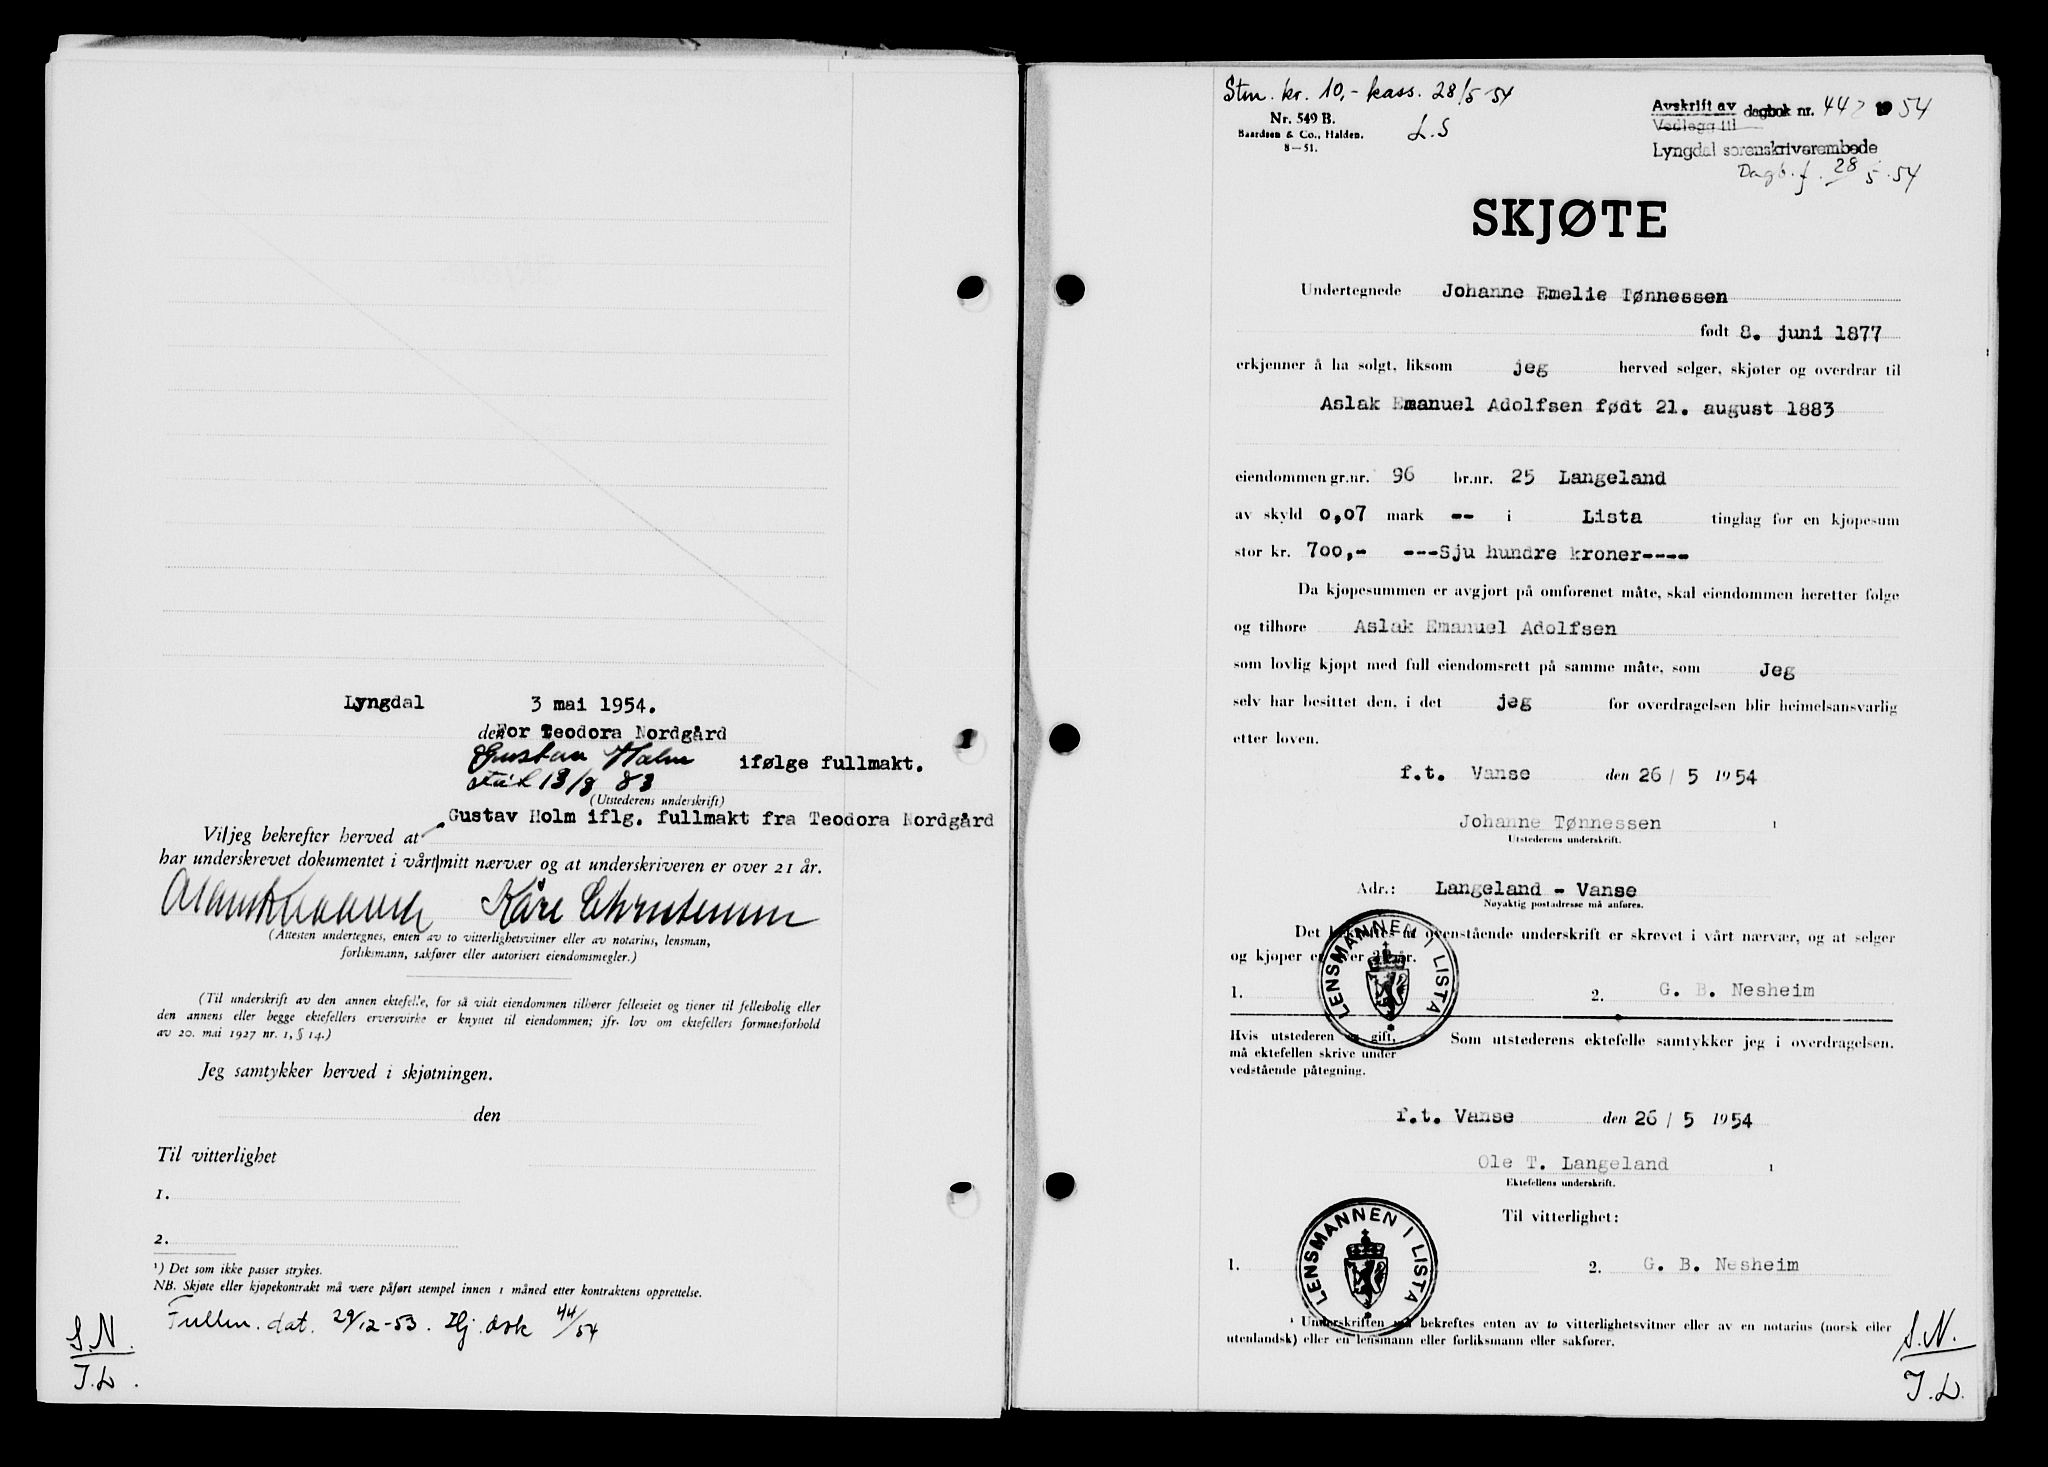 Lyngdal 3 mai 1954.
den For Teodora Nordgård
Gustav Holm ifølge fullmakt.
13/8 83
(Utstederens underskrift)
Gustav Holm iflg. fullmakt fra Teodora Nordgård
Vi/jeg bekrefter herved at
har underskrevet dokumentet i vårt/mitt nærvær og at underskriveren er over 21 år.
Kåre Christensen
(Attesten undertegnes, enten av to vitterlighetsvitner eller av notarius, lensman,
forliksmann, sakfører eller autorisert eiendomsmegler.)
(Til underskrift av den annen ektefelle, for så vidt eiendommen tilhører felleseiet og tjener til fellesbolig eller
den annens eller begge ektefellers erversvirke er knyttet til eiendommen; jfr. lov om ektefellers formuesforhold
av 20. mai 1927 nr. 1, § 14.)
Jeg samtykker herved i skjøtningen.
den
Til vitterlighet
1.
2.
¹) Det som ikke passer strykes.
NB. Skjøte eller kjøpekontrakt må være påført stempel innen 1 måned etter kontraktens opprettelse.
Fullm. dat. 29/12-53. Hj. dok 44/54
S.N.
I.L.
Stm. kr. 10,- kass. 28/5-54
L.S
Nr. 549 B.
Baardsen & Co., Halden.
8—51.
Avskrift av
Vedlegg til dagbok nr. 442 1954
Lyngdal sorenskriverembede
Dagb. f. 28/5.54
SKJØTE
Undertegnede Johanne Emelie Tønnessen
født 8. juni 1877
erkjenner å ha solgt, liksom jeg herved selger, skjøter og overdrar til
Aslak Emanuel Adolfsen født 21. august 1883
eiendommen gr.nr. 96 br.nr. 25 Langeland
av skyld 0,07 mark -- i Lista tinglag for en kjøpesum
stor kr. 700,- ---Sju hundre kroner----
Da kjøpesummen er avgjort på omforenet måte, skal eiendommen heretter følge
og tilhøre Aslak Emanuel Adolfsen
som lovlig kjøpt med full eiendomsrett på samme måte, som Jeg
selv har besittet den, i det jeg for overdragelsen blir heimelsansvarlig
etter loven.
f.t. Vanse den 26 / 5 1954
Johanne Tønnessen ¹
Utstederens underskrift.
Adr.: Langeland - Vanse
Nøyaktig postadresse må anføres.
Det bekreftes at ovenstående underskrift er skrevet i vårt nærvær, og at selger
og kjøper er over 21 år.
1. 2. G. B. Nesheim
LENSMANNEN I LISTA
Hvis utstederen er gift,
må ektefellen skrive under
vedstående påtegning.
Som utstederens ektefelle samtykker jeg i overdragelsen.
f.t. Vanse den 26 / 5 1954
Ole T. Langeland ¹
Ektefellens underskrift.
Til vitterlighet:
1. 2. G. B. Nesheim
LENSMANNEN I LISTA
¹ Underskriften må bekreftes enten av to vitterlighetsvitner eller av en notarius (norsk eller
utenlandsk) eller en lensmann eller forliksmann eller sakfører.
S.N.
I.L.